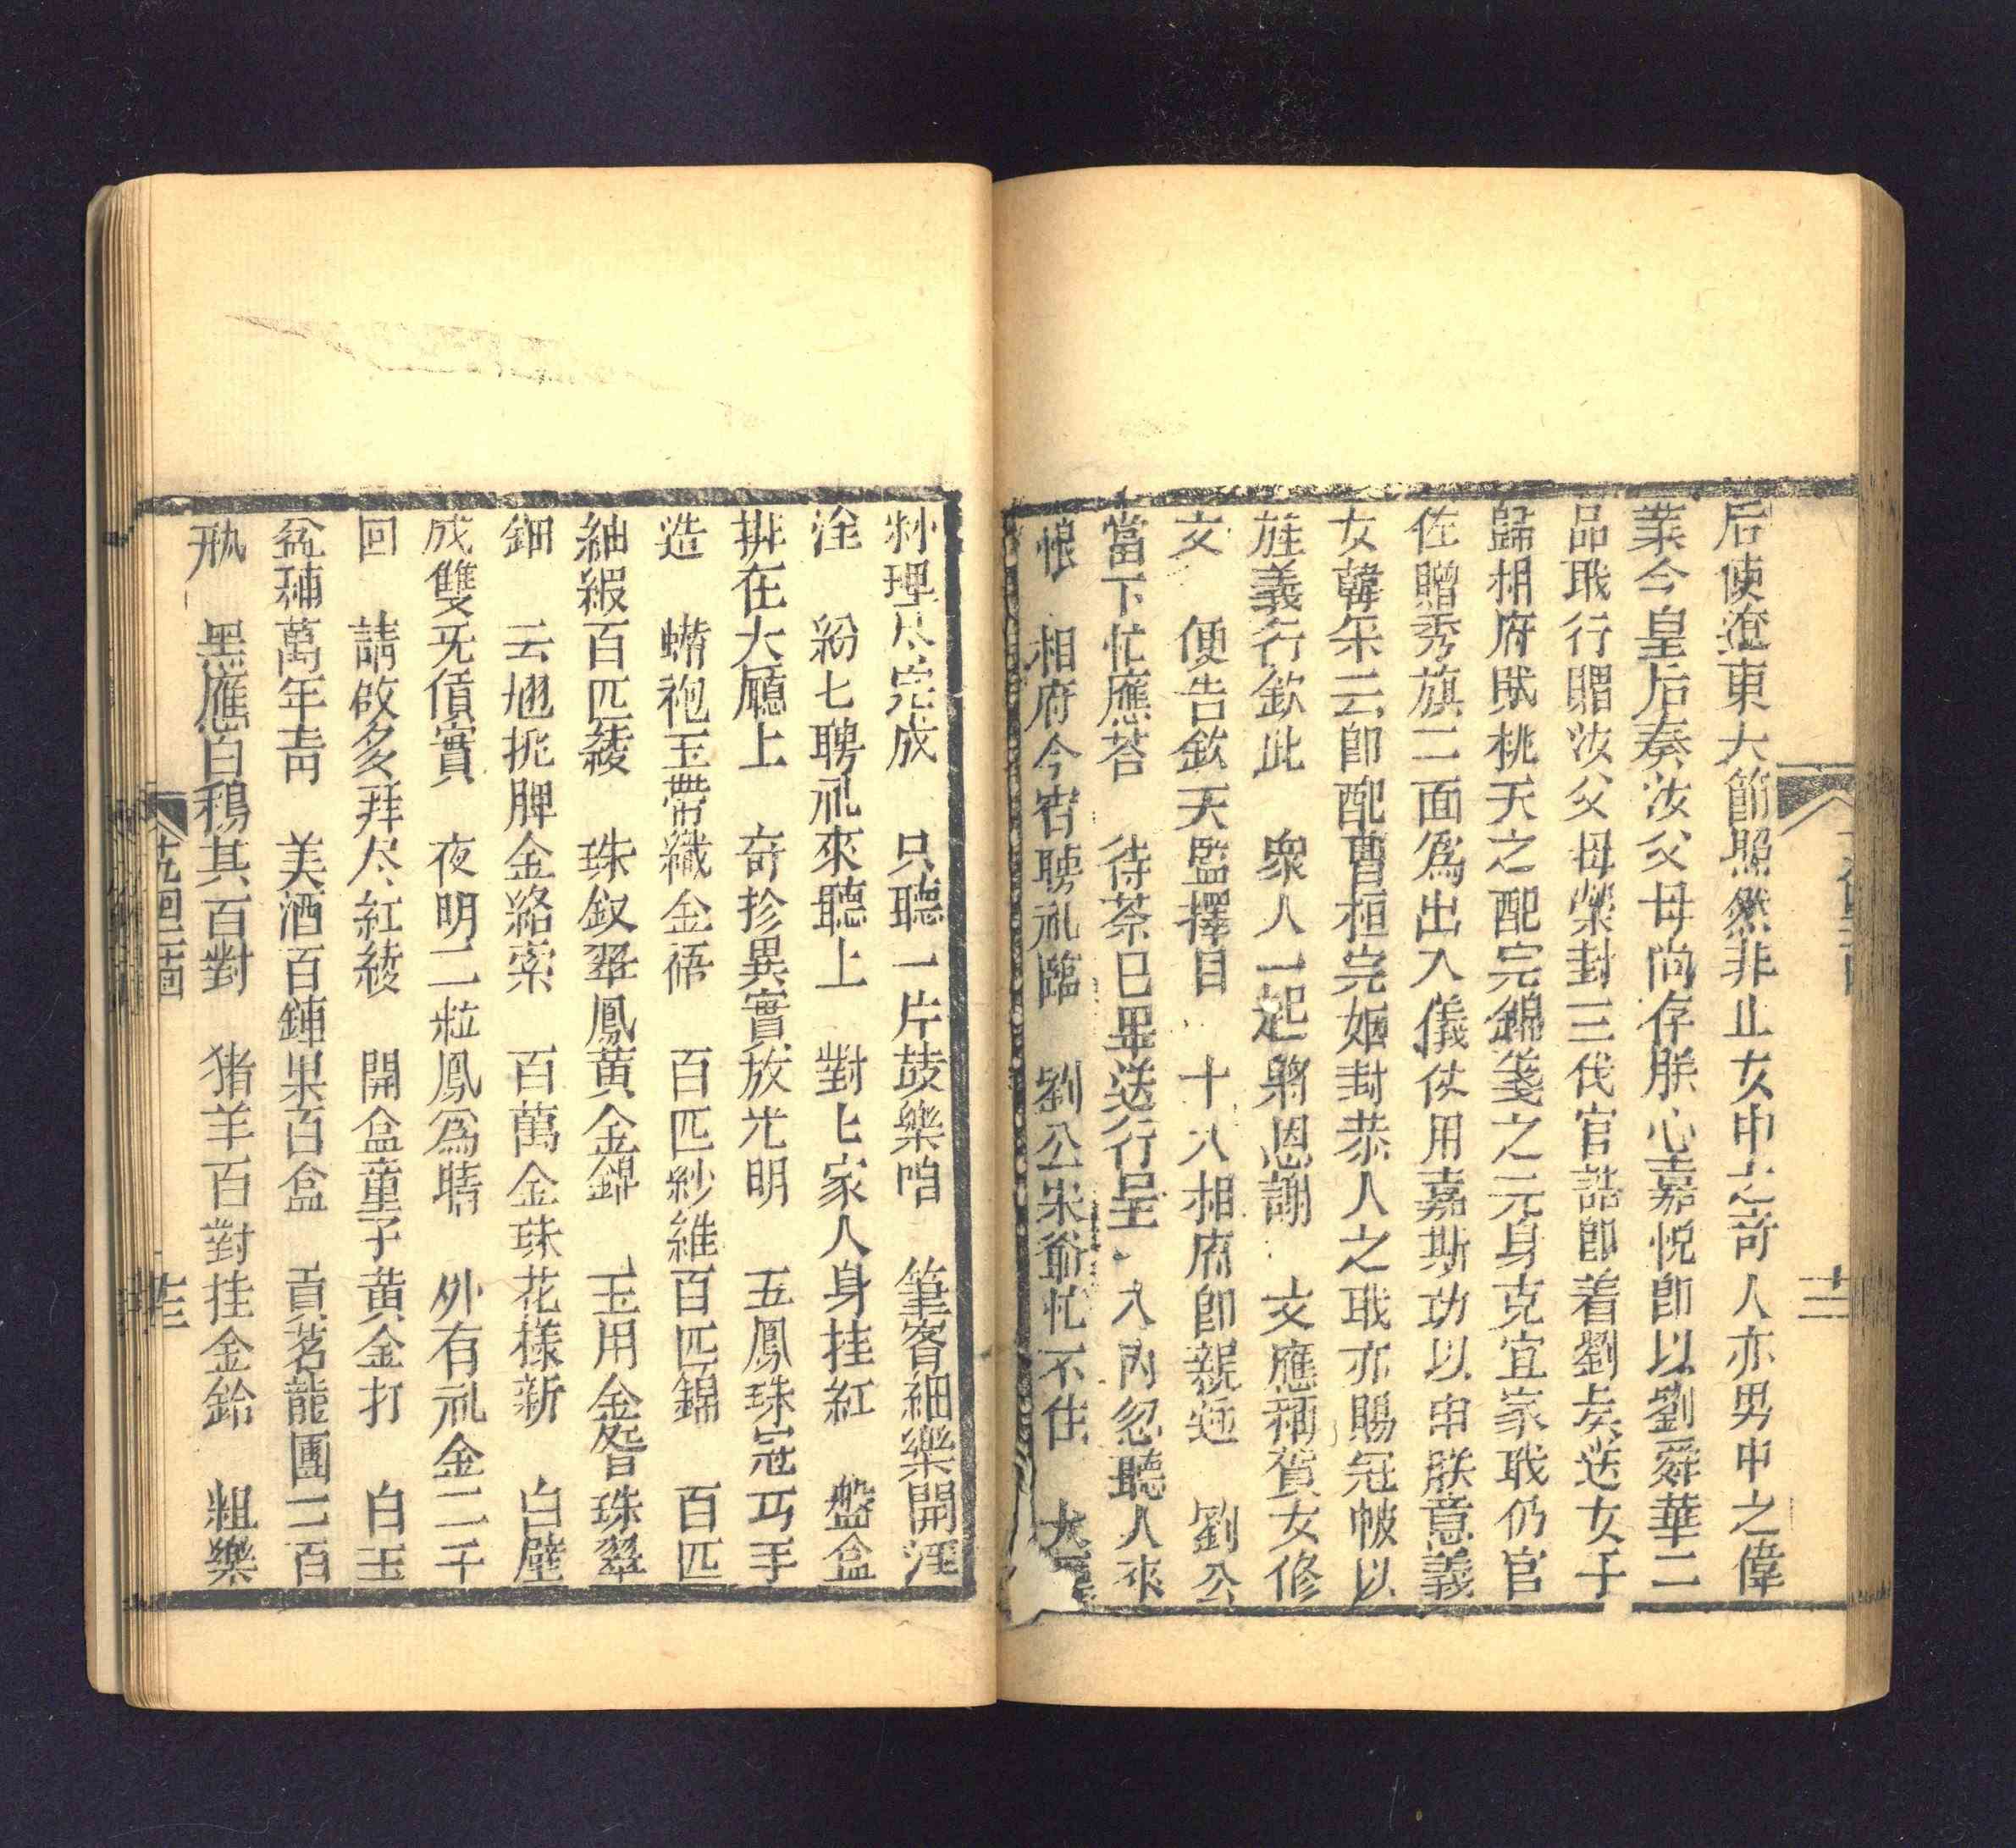 后使遼東大節照然非止女中之奇人亦男中之偉
業今皇后奏汝父母尚存朕心嘉悅即以劉舜華二
品戢行贈汝父母榮封三代官誥即着劉矣送女子
歸相府賦桃夭之配完錦箋之元身克宜家戢仍官
佐贈秀旗二面為出入儀仗用嘉斯功以申朕意義
女韓朱云即配曹桓完姻封恭人之戢亦賜冠帔以
旌義行欽此 衆人一起躬恩謝 文應補賀女修
文 便告欽天監擇日 十八相府即親迎 劉公
當下忙應荅 待茶已畢送行呈 入內忽聽人來
恨 相府今宵聘礼臨 劉公呆爺忙不住 大
料理尽完成 只聽一片鼓樂咱 筆客細樂開涇
淦 紛匕聘礼來聽上 對匕家人身挂紅 盤盒
排在大廳上 奇珍異實放光明 五鳳珠冠巧手
造 蟒袍玉帶織金𧙥 百匹紗維百匹錦 百匹
紬緞百匹綾 珠釵翠鳳黃金錦 玉用金簪珠翠
鈿 云翹挑脾金絡索 百萬金珠花樣新 白壁
成雙旡價實 夜明二粒鳳為聘 外有礼金二千
回 請啟多拜尽紅綾 開盒童子黃金打 白玉
盆𤥨萬年青 美酒百鍾果百盒 貢茗龍團二百
瓶 黑應白鵝其百對 猪羊百對挂金鈴 粗樂
十九回
十二